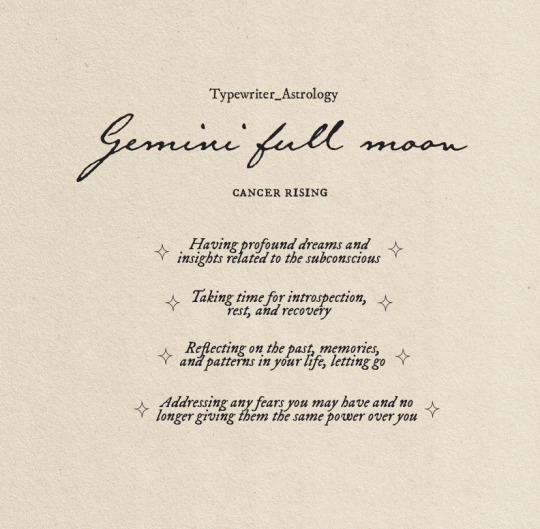 Typewriter_Astrology
Gemini full moon
CANCER RISING
Having profound dreams and
insights related to the subconscious
Taking time for introspection,
rest, and recovery
Reflecting on the past, memories,
and patterns in your life, letting go
Addressing any fears you may have and no
longer giving them the same power over you